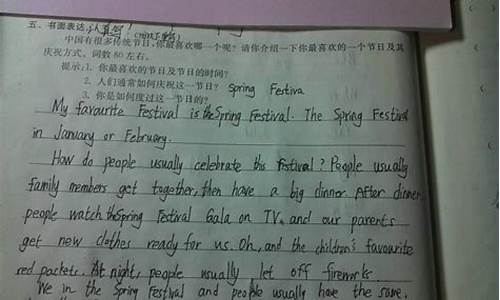 五、书面表达 认真写!
中国有很多传统节日,你最喜欢哪一个呢?请你介绍一下你最喜欢的一个节日及其
庆祝方式。词数 80 左右。
提示:1. 你最喜欢的节日及节日的时间?
2. 人们通常如何庆祝这一节日? Spring Festiva
3. 你是如何度过这一节日的?
My favourite Festival is the Spring Festival. The Spring Festival
in January or February.
How do people usually celebrate this festival? People usually
family members get together, then have a big dinner. After dinner,
people watch the Spring Festival Gala on TV. and our parents
get new clothes ready for us. Oh, and the children's favourite
red packets. At night, people usually let off fireworks.
We in the Spring Festival and people usually have the same,